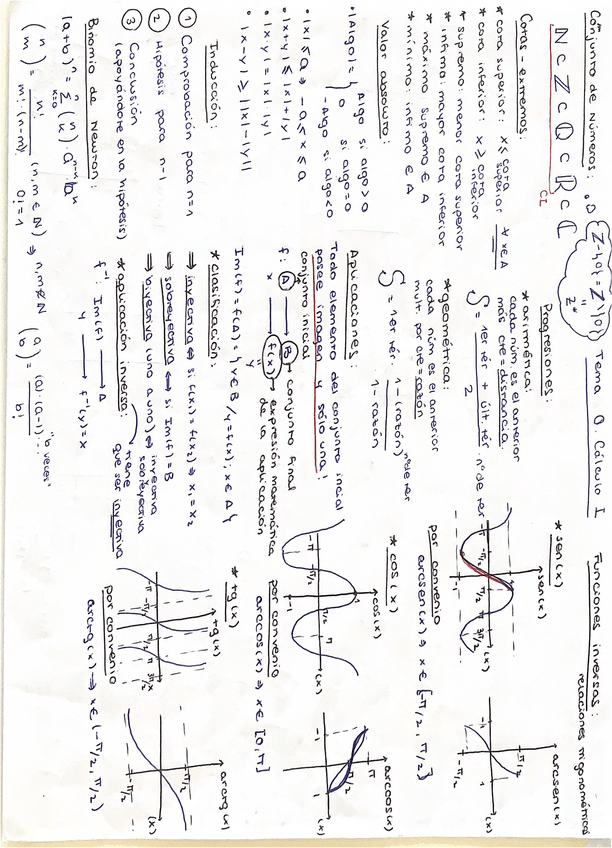 Tema 0 Cálculo I
Conjunto de Números:
ℕ ⊂ ℤ ⊂ ℚ ⊂ ℝ ⊂ ℂ
{ℤ-{0} = ℤ\{0}}
"
ℤ*
Cotas - extremos:
* cota superior: x ≤ cota superior ∀ x ∈ A
* cota inferior: x ≥ cota inferior
* supremo: menor cota superior
* ínfimo: mayor cota inferior
* máximo: supremo ∈ A
* mínimo: ínfimo ∈ A
Valor absoluto:
· |Algo| = { Algo si algo>0
0 si algo=0
-Algo si algo<0
· |x| ≤ a ⇒ -a ≤ x ≤ a
· |x+y| ≤ |x|+|y|
· |x·y| = |x|·|y|
· |x-y| ≥ ||x|-|y||
Inducción:
① Comprobación para n=1
② Hipótesis para n-1
③ Conclusión
(apoyándote en la hipótesis)
Binomio de Newton:
(a+b)ⁿ = Σ (n k) · aⁿ⁻ᵏ · bᵏ
k=0
(n m) = n! / m!·(n-m)! (n,m ∈ ℕ) ⇒ n,m ∉ ℕ (a b) = (a)·(a-1)·... "b veces" / b!
0! = 1
Progresiones:
* aritmética:
cada núm es el anterior
más cte = distancia
S = 1er tér + últ. tér / 2 · nº de tér
* geométrica:
cada núm es el anterior
mult. por cte = razón
S = 1er tér. 1-(razón)^nº de tér / 1-razón
Aplicaciones:
Todo elemento del conjunto inicial
posee imagen y sólo una!
conjunto inicial
f: A → B → conjunto final
x → f(x) → expresión matemática
de la aplicación
y
Im(f) = f(A) = {y ∈ B / y = f(x); x ∈ A}
* clasificación:
⇒ inyectiva ⇔ si f(x₁) = f(x₂) ⇒ x₁ = x₂
⇒ sobreyectiva ⇔ si Im(f) = B
⇒ biyectiva (uno a uno) ⇔ inyectiva
sobreyectiva
* aplicación inversa: tiene
que ser inyectiva
f⁻¹: Im(f) → A
y → f⁻¹(y) = x
Funciones inversas:
relaciones trigonométricas
* sen(x)
sen(x)
-π -π/2 π/2 π 3π/2 (x)
arcsen(x)
-1 1 (x)
-π/2
por convenio
arcsen(x) ⇒ x ∈ [-π/2, π/2]
* cos(x)
cos(x)
-π -π/2 π/2 π (x)
-1
arccos(x)
π
-1 1 (x)
por convenio
arccos(x) ⇒ x ∈ [0, π]
* tg(x)
tg(x)
-π -π/2 π/2 π 3π/2 (x)
arctg(x)
π/2
-π/2
(x)
por convenio
arctg(x) → x ∈ (-π/2, π/2)